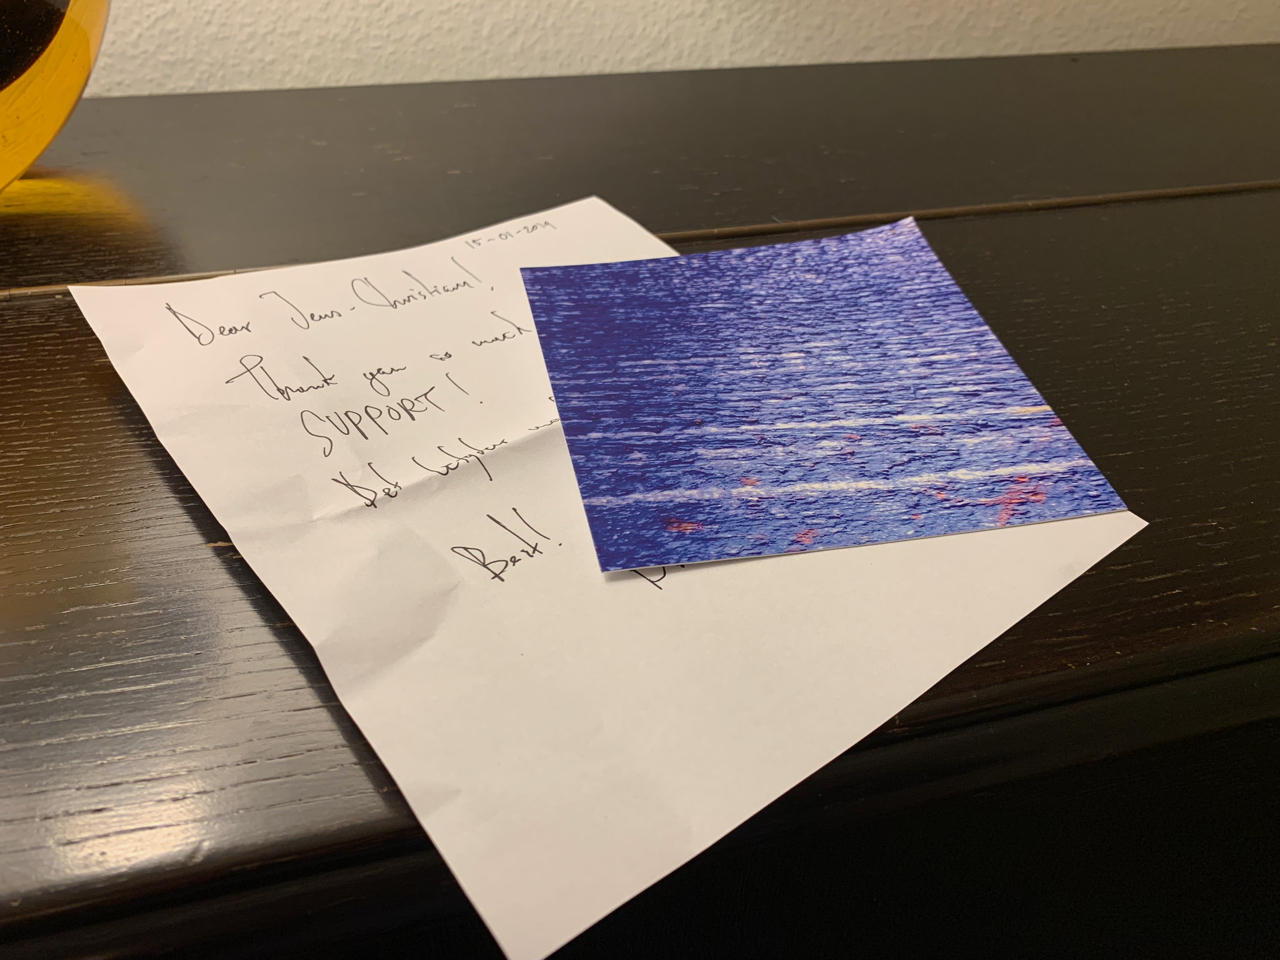 15-01-2019
Dear Jens-Christian!,
Thank you so much
SUPPORT!
Best!